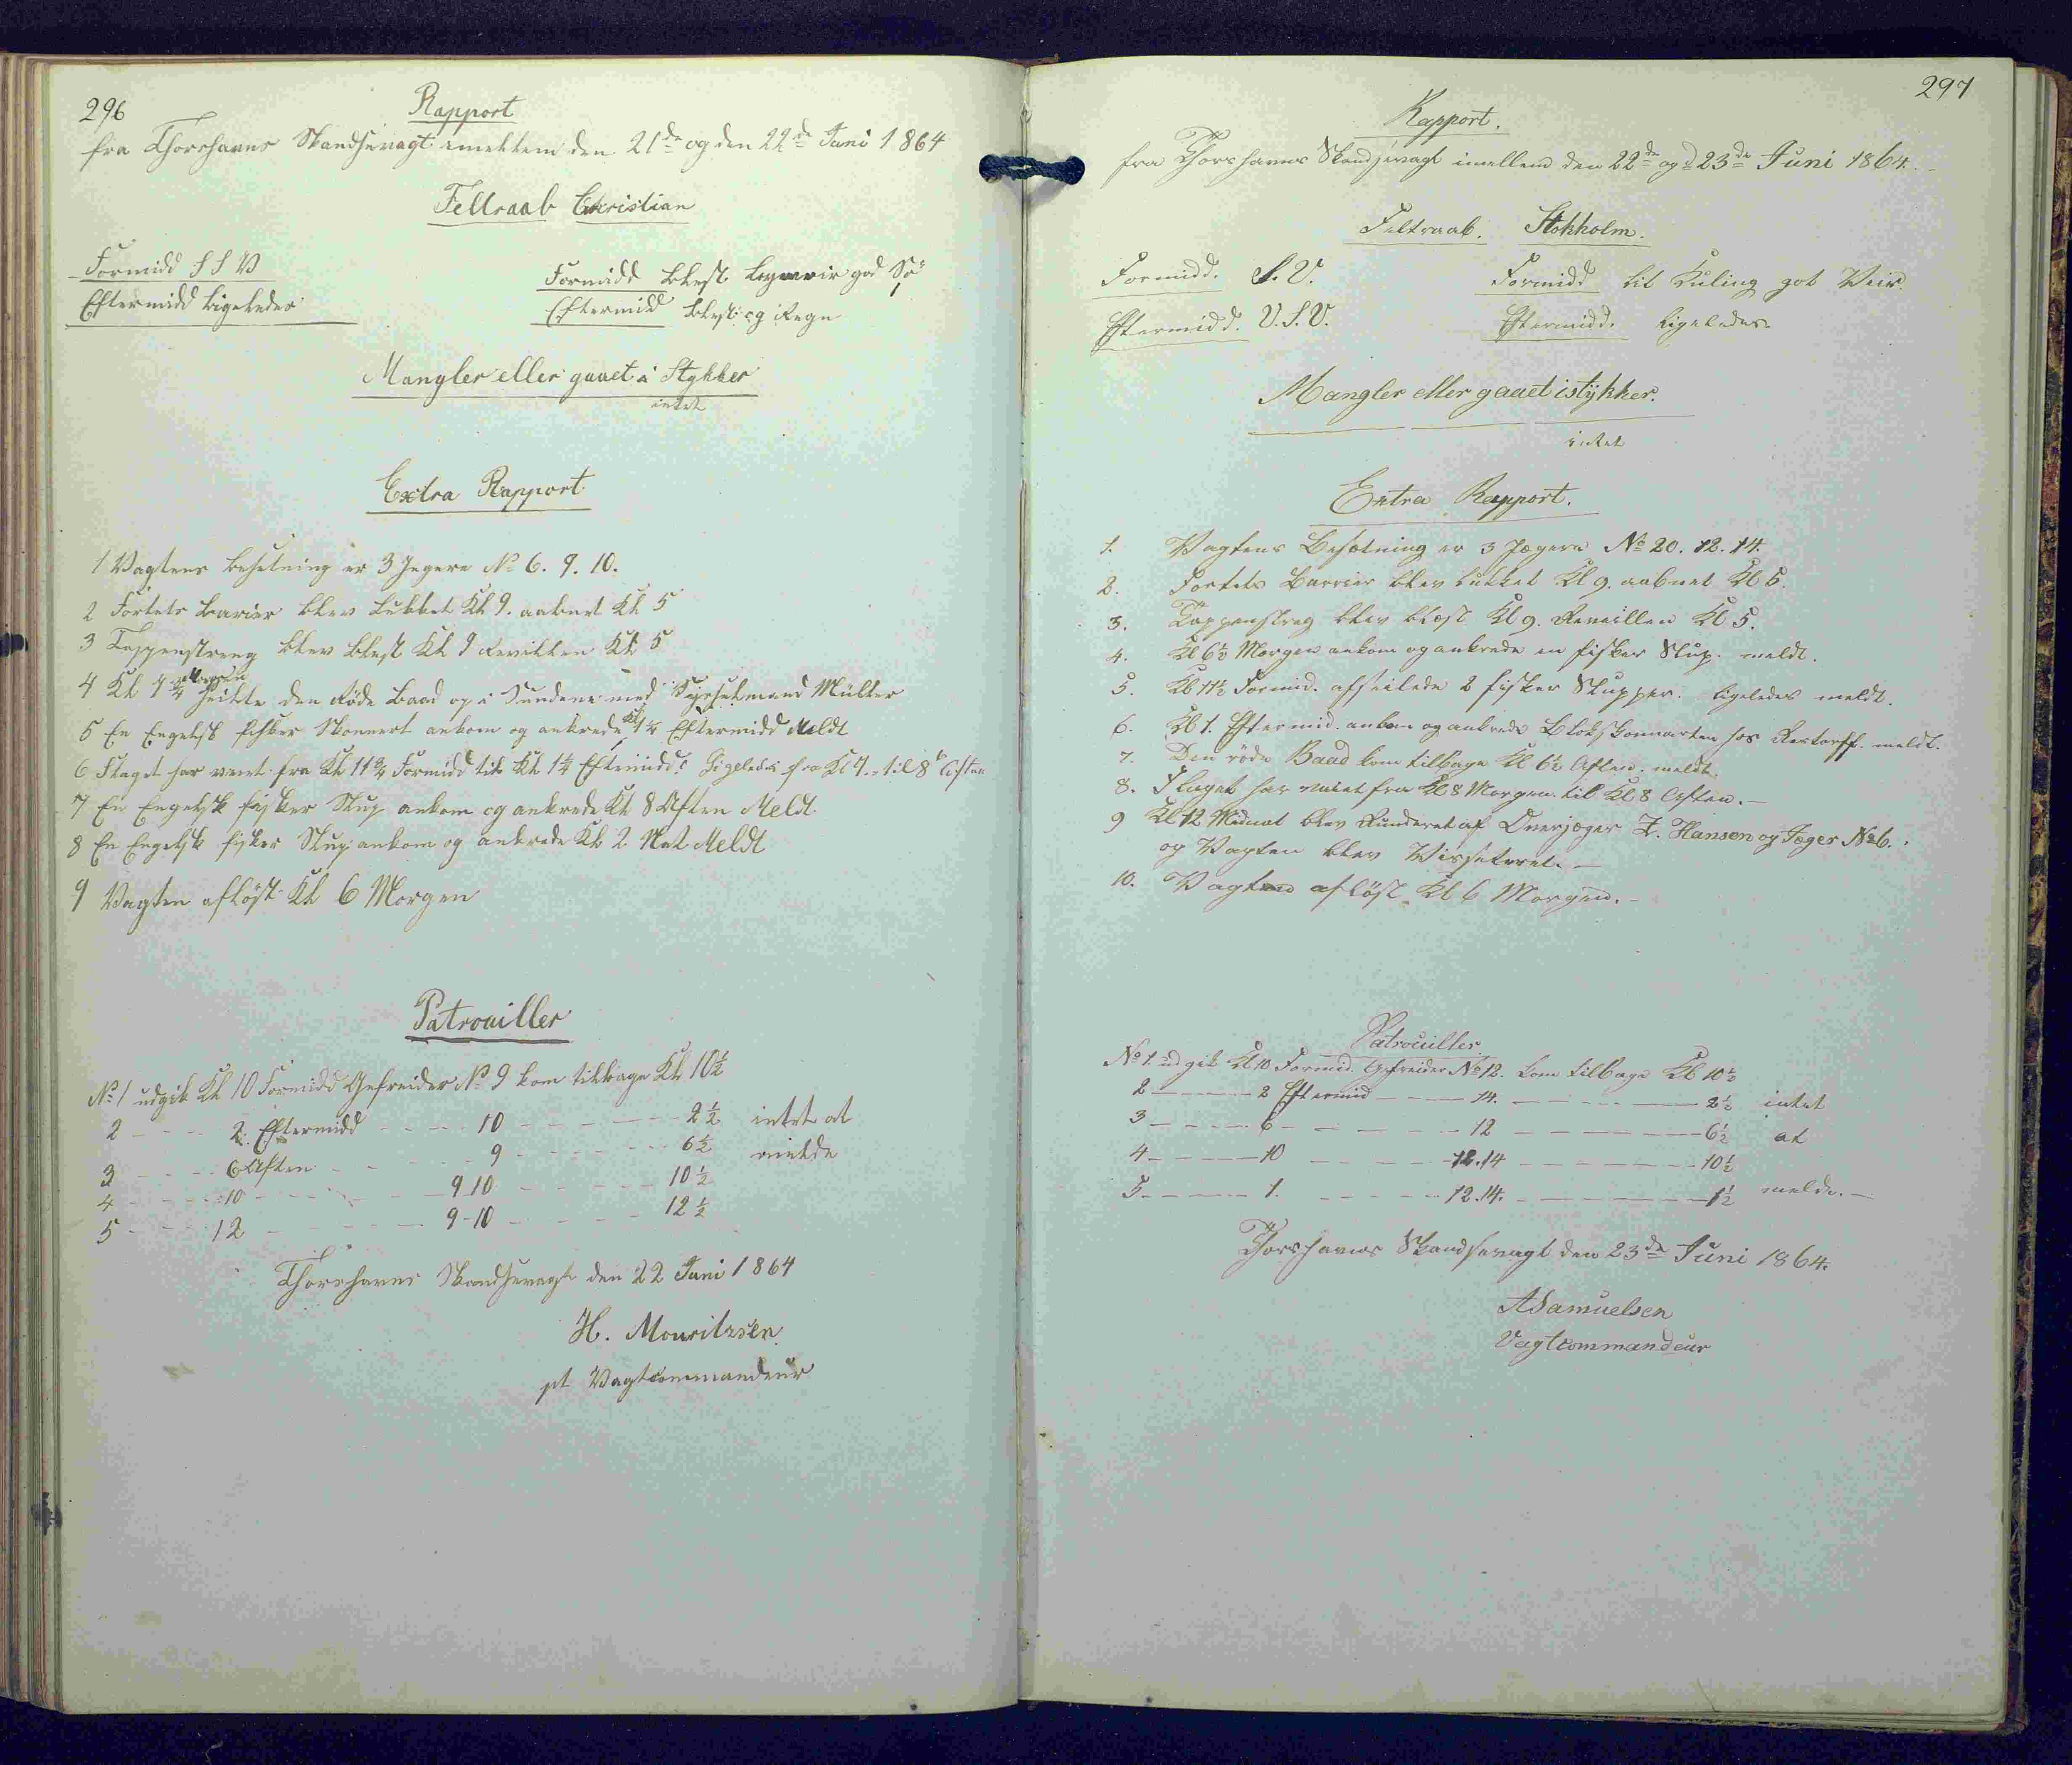 296
Rapport
fra Thorshavns Skandsevagt imellem den 21de og den 22de Juni 1864
Feltraab Christian
Formidd S S V
Eftermidd ligeledes
Formidd blest god Sö
Eftermidd blest og Regn
Mangler eller gaaet i Stykker
intet
Extra Rapport
1 Vagtens besetning er 3 Jegere No 6. 9. 10.
2 Fortets barier blev lukket Kl 9. aabnet Kl 5
3 Tappenstreng blev blest Kl 9 Revillen Kl 5
4 Kl 4 1/4 Morgen seilte den Röde baad op i Sundene med Syselmand Müller
5 En Engelsk fisker Skonnert ankom og ankrede Kl 1 1/4 Eftermidd Meldt
6 Flaget har veiet fra Kl 11 3/4 Formidd til Kl 1 1/4 Eftmidd. Ligeledes fra Kl 7 til 8 Aften
7 En Engelsk fisker Slup ankom og ankrede Kl 8 Aften Meldt
8 En Engelsk fisker Slup ankom og ankrede Kl 2 Nat Meldt
9 Vagten aflöst Kl 6 Morgen
Patrouiller
No 1 udgik Kl 10 Formidd Gefreider No 9 kom tilbage Kl 10 1/2
2 - - - 2 Eftermidd - - - - 10 - - - - - - 2 1/2 intet at
3 - - - 6 Aften - - - - 9 - - - - - - 6 1/2 melde
4 - - - 10 - - - - 9 10 - - - - - 10 1/2
5 - - - 12 - - - - 9-10 - - - - - 12 1/2
Thorshavns Skandsevagt den 22 Juni 1864
H. Mouritzsen
pt Vagtcommandeur
297
Rapport.
fra Thorshavns Skandsevagt imellem den 22de og d 23de Juni 1864.
Feltraab. Stokholm.
Formidd. S. V.
Eftermidd. V. S. V.
Formidd lit Kuling got Veir.
Eftermidd. ligeledes
Mangler eller gaaet istykker.
intet
Extra Rapport.
1. Vagtens Besætning er 3 Jægere No 20. 12. 14.
2. Fortets Barrier blev lukket Kl 9. aabnet Kl 5.
3. Tappenstreg blev blæst Kl 9. Reveillen Kl 5.
4. Kl 6 1/2 Morgen ankom og ankrede en fisker Slup. meldt.
5. Kl 11 1/2 Formid. afseilede 2 fisker Slupper. ligeledes meldt.
6. Kl 1. Eftermid. ankom og ankrede hos Restorff. meldt.
7. Den röde Baad kom tilbage Kl 6 1/2 Aften. meldt.
8. Flaget har veiet fra Kl 8 Morgen til Kl 8 Aften.
9 Kl 12 Midnat blev Runderet af Overjæger Z. Hansen og Jæger No 6.
og Vagten blev Visseteret.
10. Vagten aflöst Kl 6 Morgen.
Patrouiller.
No 1. udgik Kl 10 Formid. Gefreider No 12. kom tilbage Kl 10 1/2
2 - - - 2 Eftermid - - - 14. - - - - - 2 1/2 intet
3 - - - 6 - - - - - 12 - - - - - 6 1/2 at
4 - - - 10 - - - - 12.14 - - - - - 10 1/2
5 - - - 1. - - - - 12.14. - - - - - 1 1/2 melde.
Thorshavns Skandsevagt den 23de Juni 1864.
ASamuelsen
Vagtcommandeur